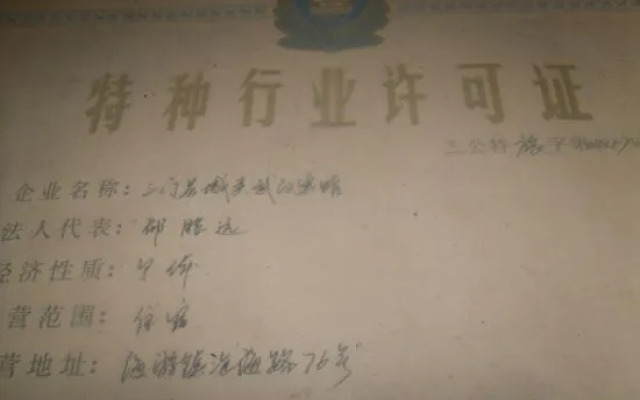 特种行业许可证
三公特旅字第
企业名称：三门县城关
法人代表：邵胜远
经济性质：个体
营范围：住宿
营地址：海游镇滨海路76号